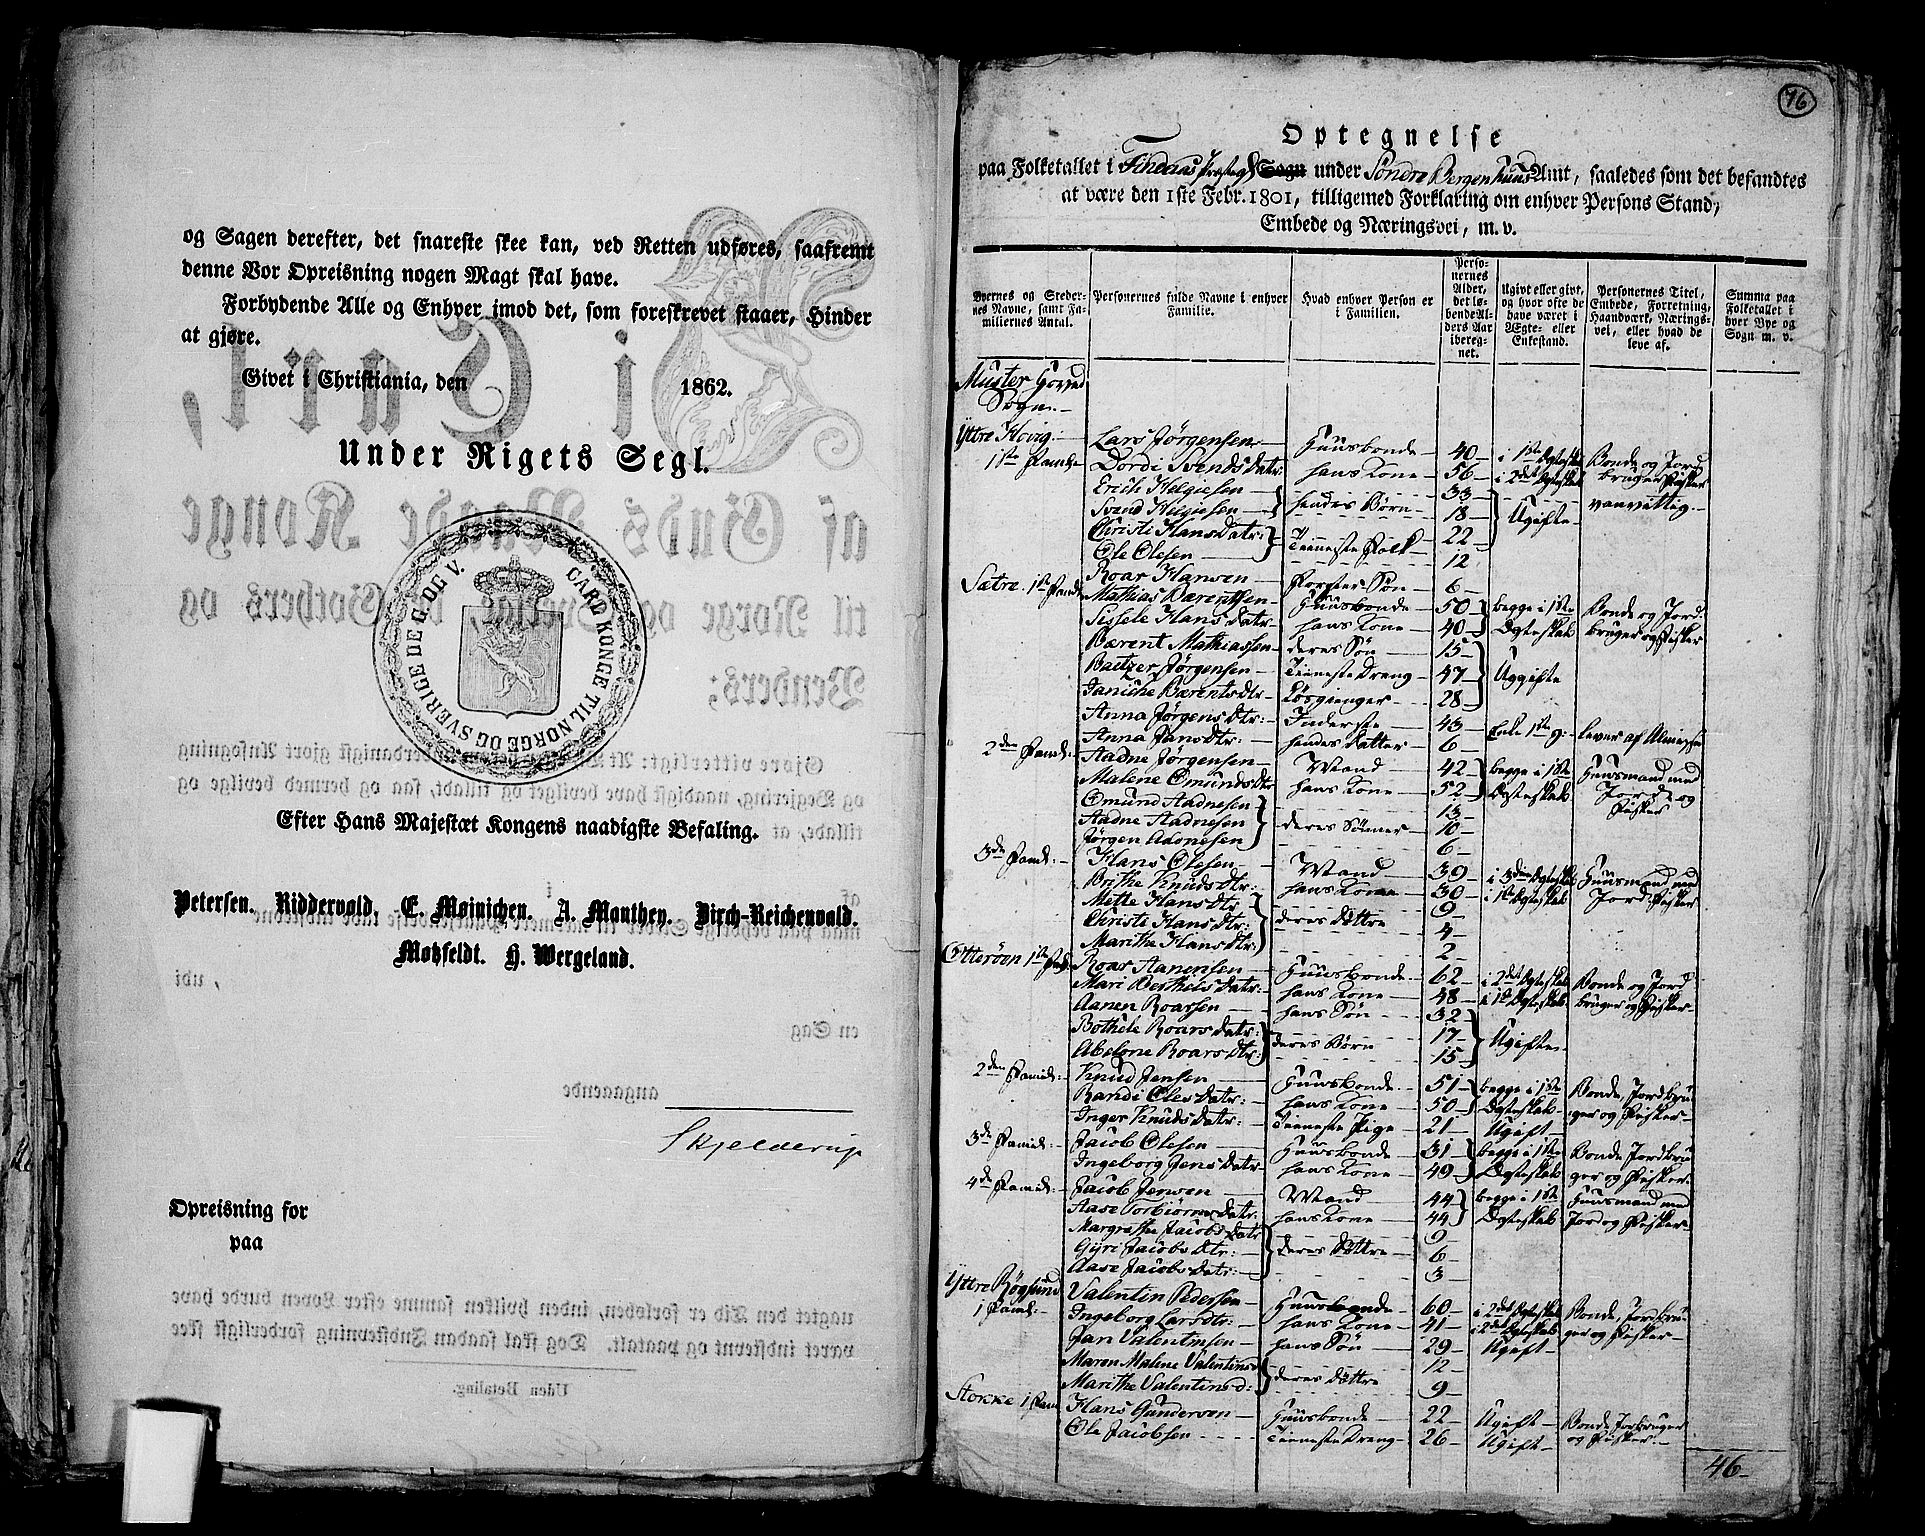 og Sagen derefter, det snareste skee kan, ved Retten udføres, saafremt
denne Vor Opreisning nogen Magt skal have.
Forbydende Alle og Enhver imod det, som foreskrevet staaer, Hinder
at gjøre.
Givet i Christiania, den 1862.
Under Rigets Segl.
CARL KONGE TIL NORGE OG SVERIGE DE G. OG V.
Efter Hans Majestæt Kongens naadigste Befaling.
Petersen. Riddervold. E. Møinichen. A. Manthey. Birch-Reichenvald.
Motzfeldt. H. Wergeland.
angaaende
Skjelderup
Opreisning for
paa
76
Optegnelse
paa Folketallet i Findaas Præsteg. Sogn under Söndre Bergenhuus Amt, saaledes som det befandtes
at være den 1ste Febr. 1801, tilligemed Forklaring om enhver Persons Stand,
Embede og Næringsvei, m. v.
Byernes og Steder-
nes Navne, samt Fa-
miliernes Antal.
Personernes fulde Navne i enhver
Familie.
Hvad enhver Person er
i Familien.
Perso-
nernes
Alder,
det lø-
bende Al-
ders Aar
iberegnet.
Ugivt eller givt,
og hvor ofte de
have været i
Ægte- eller
Enkestand.
Personernes Titel,
Embede, Forretning,
Haandværk, Nærings-
vei, eller hvad de
leve af.
Summa paa
Folketallet i
hver Bye og
Sogn m. v.
Muster Hoved
Sogn.
Yttre Hovig.
1ste Famile
Lars Jörgensen Huusbonde 40 i 1ste Ægtesk. Bonde og Jord
Dordi Svends datr: hans Kone 56 i 2det Ægtesk. bruger Fisker
Erich Helgiesen 33 vanvittig
Svend Helgiesen hendes Börn 18 Ugifte
Christi Hans datr: 22
Ole Olesen Tieneste Folk 12
Roar Hansen Foster Sön 6
Sætre. 1ste Famile
Mathias Bærentsen Huusbonde 50 begge i 1ste Bonde og Jord
Sissele Hans datr. hans Kone 40 Ægteskab bruger og Fisker
Bærent Mathiassen deres Sön 15
Baltzer Jörgensen Tieneste Dreng 47 Ugifte
Janiche Bærents dtr. Lösgienger 28
Anna Jörgens dtr: Inderste 43 Enke 1ste g: lever af Almisse
Anna Jans dtr: hendes Datter 6
2den Famil:
Aadne Jörgensen Mand 42 begge i 1ste Huusmand med
Malene Omunds dtr hans Kone 52 Ægteskab Jord og
Omund Aadnesen 13 Fisker
Aadne Aadnesen deres Sönner 10
Jörgen Adnesen 6
3de Famil:
Hans Olesen Mand 39 i 3die Ægteskab Huusmand med
Brithe Knuds dtr: hans Kone 30 i 1ste Ægteskab Jord. Fisker
Mette Hans dtr 9
Christe Hans dtr: deres Döttre 4
Marithe Hans dtr: 2
Otteröen 1ste Fam.
Roar Aanensen Huusbonde 62 i 2det Ægteskab Bonde og Jord
Mari Berthels datr: hans Kone 48 i 1ste Ægteskab bruger og Fisker
Aanen Roarsen hans Sön 32
Bothele Roars datr: 17 Ugifte
Abelone Roars dtr: deres Börn 15
2den Famil:
Knud Jensen Huusbonde 51 begge i 1ste Bonde, Jordbru
Randi Oles datr: hans Kone 50 Ægteskab ger og Fisker
Inger Knuds datr: Tieneste Pige 21 Ugift
3de Famil:
Jacob Olesen Huusbonde 31 begge i 1ste Bonde Jordbru
Ingeborg Jens datr hans Kone 49 Ægteskab ger og Fisker
4de Famil:
Jacob Jensen Mand 44 begge i 1ste Huusmand med
Aase Torbiörns datr: hans Kone 44 Ægteskab Jord og Fisker
Margrethe Jacobs datr 9
Gyri Jacobs dtr: deres Döttre 6
Aase Jacobs datr: 3
Yttre Rögsund
1 Famil:
Valentin Pedersen Huusbonde 60 i 2det Ægteskab Bonde, Jordbru
Ingeborg Lars dtr: hans Kone 41 i 2det Ægteskab ger og Fisker
Jan Valentinsen hans Sön 29 Ugift
Maren Malene Valentins d 12
Marithe Valentins d: deres Döttre 9
Stokke 1 Fam
Hans Gundersen Huusbonde 22 Ugift Bonde Jorbruger
Ole Jacobsen Tieneste Dreng 26 Ugift og Fisker
46